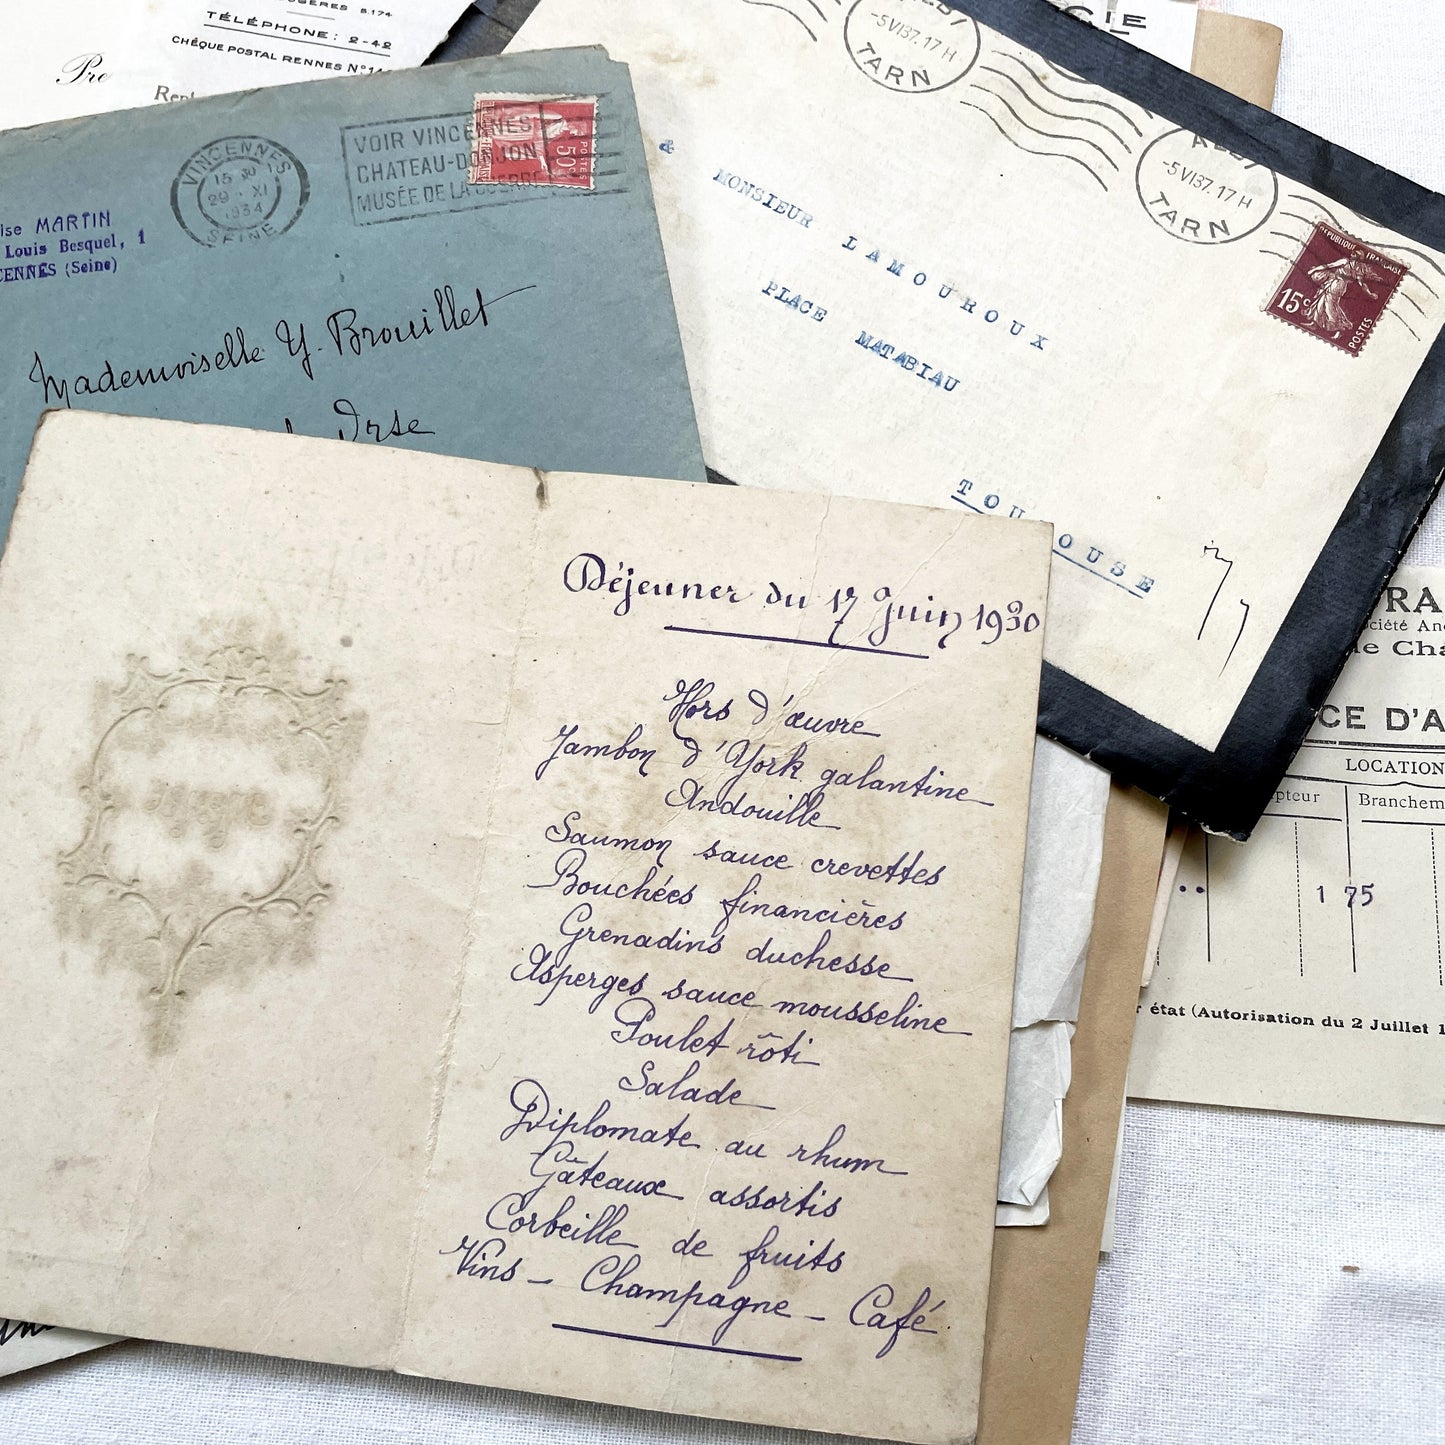 TÉLÉPHONE: 2-42
CHÉQUE POSTAL RENNES N°
Pre
VINCENNES
15 30
29 XI
1934
SEINE
VOIR VINCENNES
CHATEAU-DONJON
MUSÉE DE LA GUERRE
POSTES
50c
ise MARTIN
Louis Besquel, 1
CENNES (Seine)
Mademoiselle Y. Brouillet
Orse
-5 VI37.17 H
TARN
ALBI
-5 VI37.17 H
TARN
CIE
&
MONSIEUR LAMOUROUX
PLACE MATABIAU
TOULOUSE
REPUBLIQUE FRANÇAISE
15c
POSTES
Déjeuner du 17 Juin 1930
Hors d'œuvre
Jambon d'York galantine
Andouille
Saumon sauce crevettes
Bouchées financières
Grenadins duchesse
Asperges sauce mousseline
Poulet rôti
Salade
Diplomate au rhum
Gâteaux assortis
Corbeille de fruits
Vins - Champagne - Café
RA
ciété An
le Cha
CE D'A
LOCATION
pteur
Branchem
1 75
r état (Autorisation du 2 Juillet 1